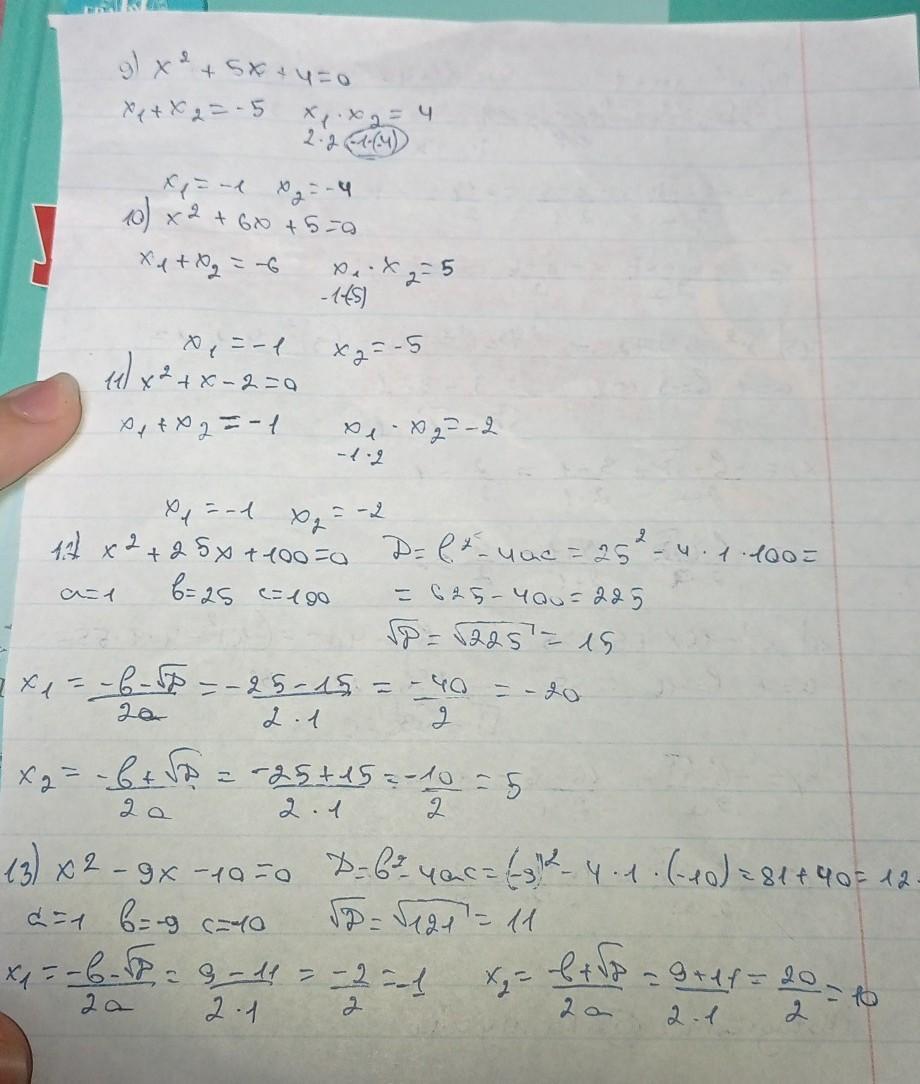 9) x² + 5x + 4 = 0
x₁ + x₂ = -5 x₁ · x₂ = 4
2·2 -1·(-4)
x₁ = -1 x₂ = -4
10) x² + 6x + 5 = 0
x₁ + x₂ = -6 x₁ · x₂ = 5
-1·(-5)
x₁ = -1 x₂ = -5
11) x² + x - 2 = 0
x₁ + x₂ = -1 x₁ · x₂ = -2
-1·2
x₁ = -1 x₂ = -2
12) x² + 25x + 100 = 0 D = b² - 4ac = 25² - 4 · 1 · 100 =
a=1 b=25 c=100 = 625 - 400 = 225
√D = √225 = 15
x₁ = (-b-√D)/(2a) = (-25-15)/(2·1) = (-40)/2 = -20
x₂ = (-b+√D)/(2a) = (-25+15)/(2·1) = (-10)/2 = 5
13) x² - 9x - 10 = 0 D = b² - 4ac = (-9)² - 4 · 1 · (-10) = 81 + 40 = 12
a=1 b=-9 c=-10 √D = √121 = 11
x₁ = (-b-√D)/(2a) = (9-11)/(2·1) = (-2)/2 = -1 x₂ = (-b+√D)/(2a) = (9+11)/(2·1) = 20/2 = 10